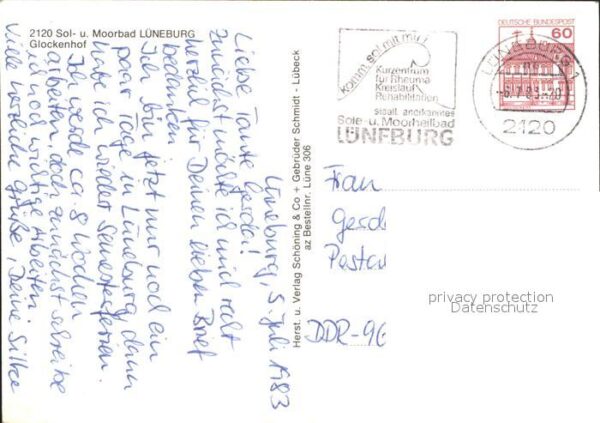 2120 Sol- u. Moorbad LÜNEBURG
Glockenhof
Lüneburg, 5. Juli 1983
Liebe Tante Gerda!
Zunächst möchte ich mich recht
herzlich für Deinen lieben Brief
bedanken.
Ich bin jetzt nur noch ein
paar Tage in Lüneburg, dann
habe ich wieder Semesterferien.
Ich werde ca. 8 Wochen
arbeiten, doch zunächst schreibe
ich noch wichtige Arbeiten.
Viele herzliche Grüße, Deine Silke
Herst. u. Verlag Schöning & Co + Gebrüder Schmidt - Lübeck
az Bestellnr. Lüne 306
komm sol mit mir
Kurzentrum
für Rheuma
Kreislauf
Rehabilitation
staatl. anerkanntes
Sole- u. Moorheilbad
LÜNEBURG
DEUTSCHE BUNDESPOST
60
LÜNEBURG 1
2120
Frau
Gerd
Postan
DDR-96
privacy protection
Datenschutz